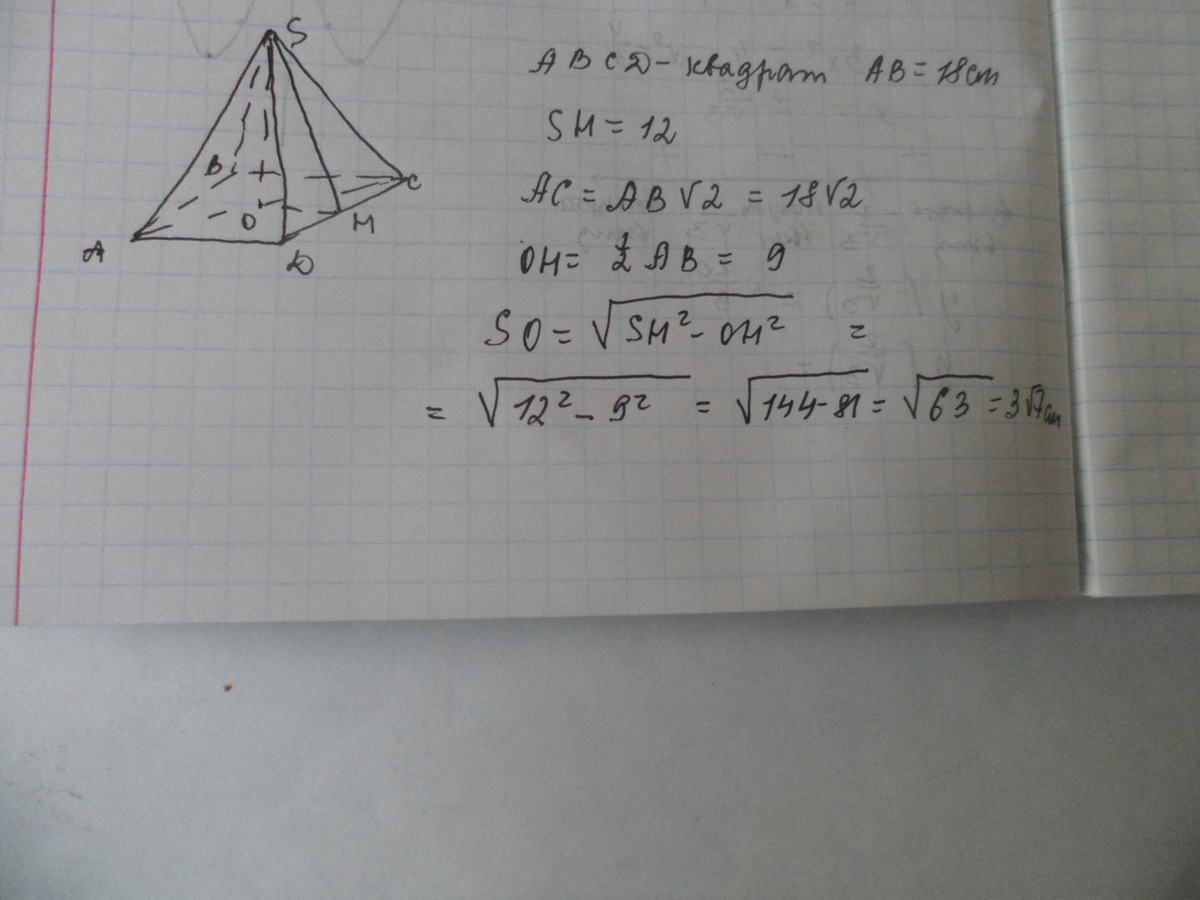 S
B
C
O
M
A
D
ABCD - квадрат AB = 18 cm
SM = 12
AC = AB√2 = 18√2
OM = 1/2 AB = 9
SO = √SM² - OM² =
= √12² - 9² = √144-81 = √63 = 3√7 cm